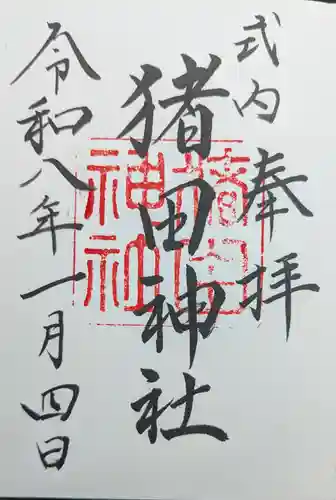 式内
奉拝
猪田神社
猪田
神社
令和八年一月四日